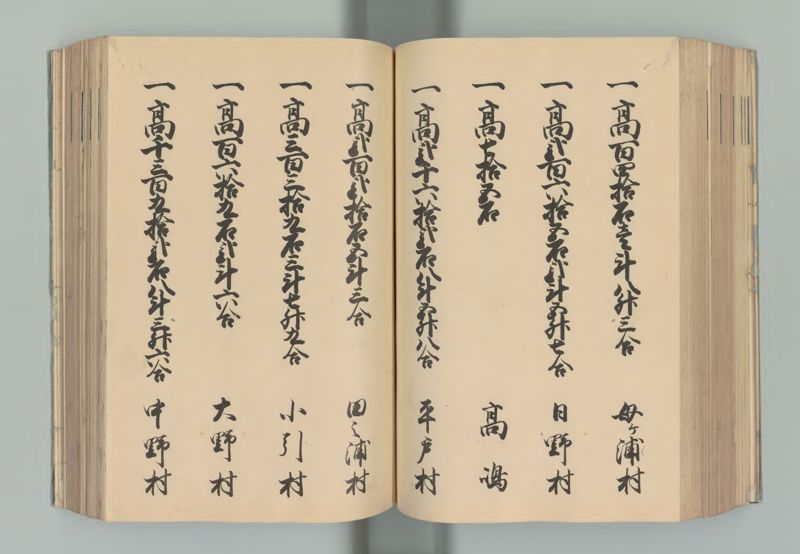 一高百四拾石壱斗八升三合 母ヶ浦村
一高弐百六拾五石弐斗五升七合 日野村
一高七拾五石 高嶋
一高弐千六拾弐石八斗五升八合 平戸村
一高弐百弐拾石五斗三合 田之浦村
一高三百三拾九石三斗七升九合 小引村
一高百六拾九石弐斗六合 大野村
一高千三百九拾弐石八斗三升六合 中野村